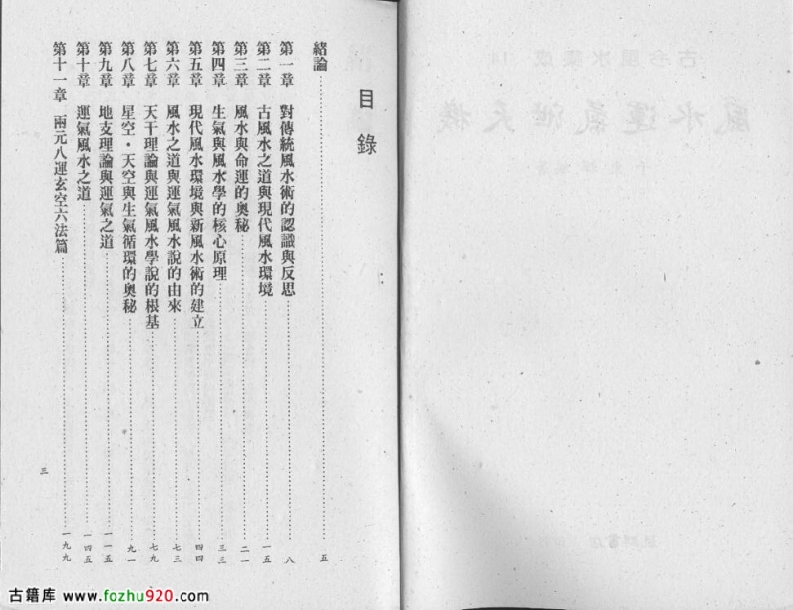 目錄
緒論……五
第一章 對傳統風水術的認識與反思……八
第二章 古風水之道與現代風水環境……一五
第三章 風水與命運的奧秘……二一
第四章 生氣與風水學的核心原理……三三
第五章 現代風水環境與新風水術的建立……四四
第六章 風水之道與運氣風水說的由來……七三
第七章 天干理論與運氣風水學說的根基……七九
第八章 星空·天空與生氣循環的奧秘……九一
第九章 地支理論與運氣之道……一一五
第十章 運氣風水之道……一四五
第十一章 兩元八運玄空六法篇……一九九
三
古今風水集成 14
風水運氣泄天機
古籍库 www.fozhu920.com